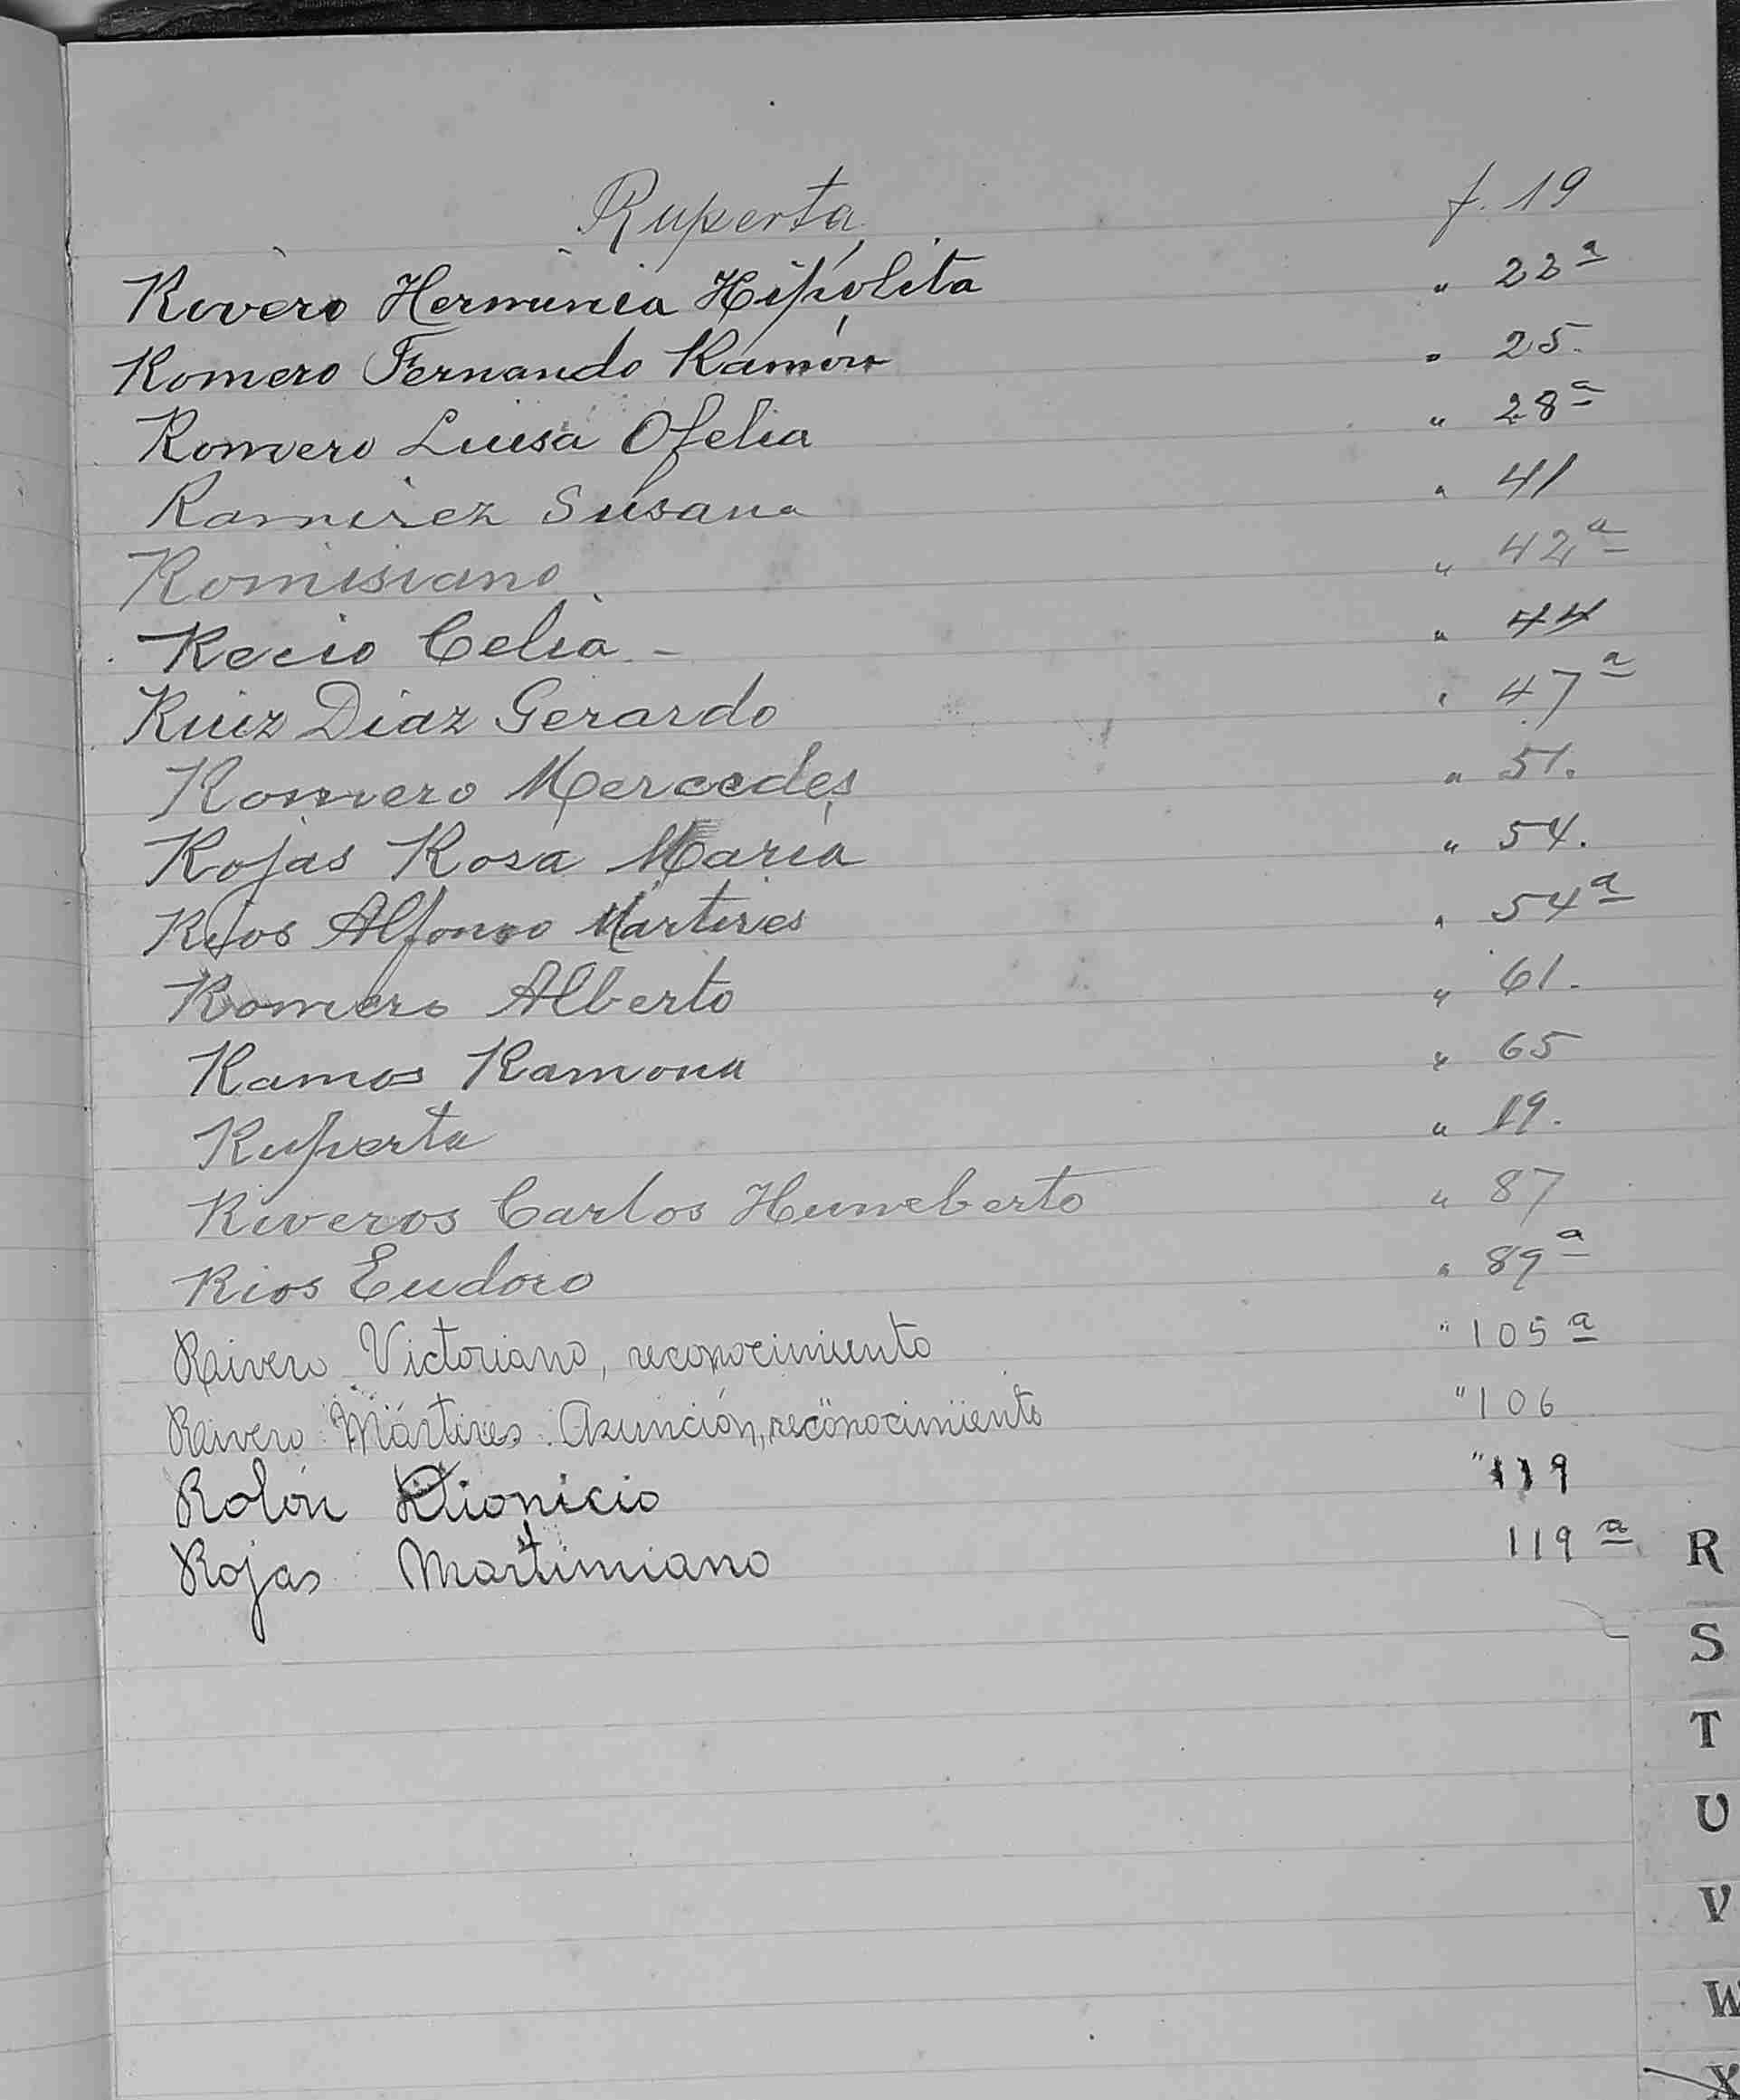 Ruperta f. 19
Rivero Herminia Hipólita " 22ª
Romero Fernando Ramón " 25.
Romero Luisa Ofelia " 28ª
Ramirez Susana " 41
Romisiano " 42ª
Recio Celia - " 44
Ruiz Diaz Gerardo " 47ª
Romero Mercedes " 51.
Rojas Rosa María " 54.
Rios Alfonso Martires " 54ª
Romero Alberto " 61.
Ramos Ramona " 65
Ruperta " 19.
Riveros Carlos Humberto " 87
Rios Eudoro " 89ª
Rivero Victoriano, reconocimiento " 105ª
Rivero Mártires Asunción, reconocimiento " 106
Rolón Dionicio " 119
Rojas Martimiano 119ª
R
S
T
U
V
W
X